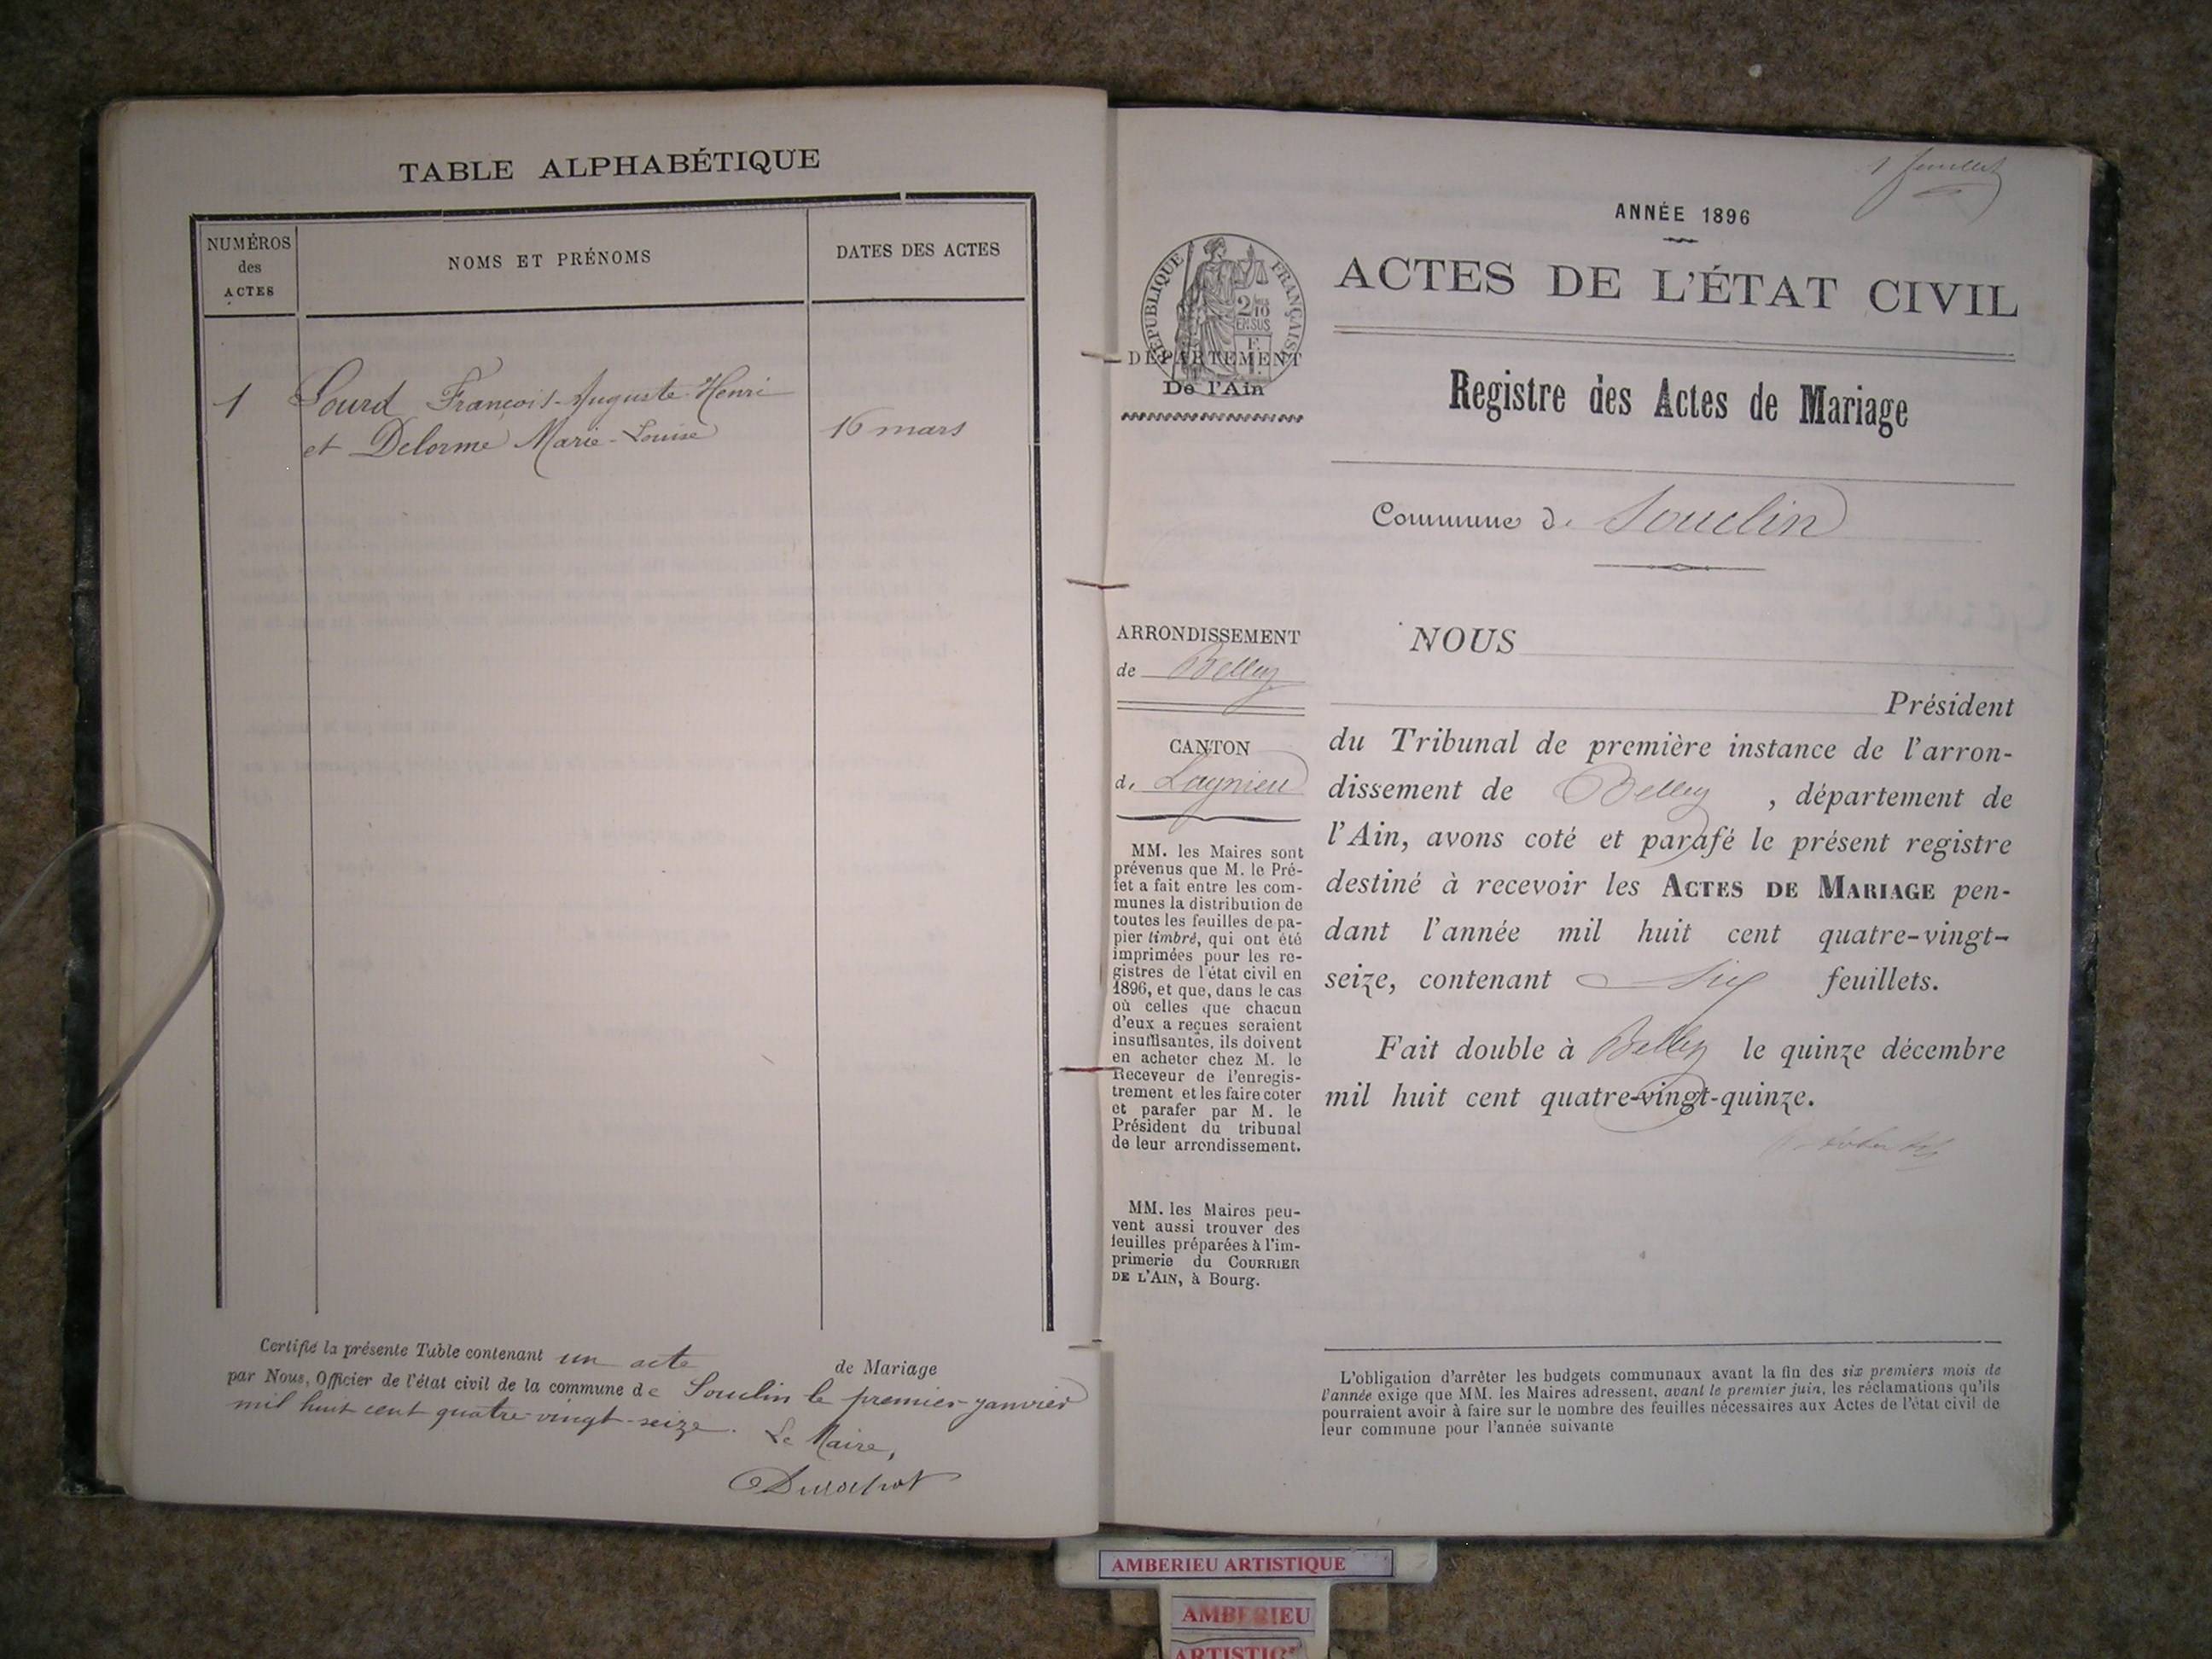 TABLE ALPHABÉTIQUE
NUMÉROS
des
ACTES
NOMS ET PRÉNOMS
DATES DES ACTES
1 Lourd François-Auguste-Henri
et Delorme Marie-Louise 16 mars
Certifié la présente Table contenant un acte de Mariage
par Nous, Officier de l'état civil de la commune de Souclin le premier janvier
mil huit cent quatre-vingt-seize. Le Maire,
1 feuillet
ANNÉE 1896
RÉPUBLIQUE FRANÇAISE
2/10
EN SUS
DÉPARTEMENT
De l'Ain
ACTES DE L'ÉTAT CIVIL
Registre des Actes de Mariage
Commune de Souclin
ARRONDISSEMENT
de Belley
CANTON
de Lagnieu
MM. les Maires sont
prévenus que M. le Pré-
fet a fait entre les com-
munes la distribution de
toutes les feuilles de pa-
pier timbré, qui ont été
imprimées pour les re-
gistres de l'état civil en
1896, et que, dans le cas
où celles que chacun
d'eux a reçues seraient
insuffisantes, ils doivent
en acheter chez M. le
Receveur de l'enregis-
trement et les faire coter
et parafer par M. le
Président du tribunal
de leur arrondissement.
MM. les Maires peu-
vent aussi trouver des
feuilles préparées à l'im-
primerie du COURRIER
DE L'AIN, à Bourg.
NOUS
Président
du Tribunal de première instance de l'arron-
dissement de Belley, département de
l'Ain, avons coté et parafé le présent registre
destiné à recevoir les ACTES DE MARIAGE pen-
dant l'année mil huit cent quatre-vingt-
seize, contenant six feuillets.
Fait double à Belley le quinze décembre
mil huit cent quatre-vingt-quinze.
L'obligation d'arrêter les budgets communaux avant la fin des six premiers mois de
l'année exige que MM. les Maires adressent, avant le premier juin, les réclamations qu'ils
pourraient avoir à faire sur le nombre des feuilles nécessaires aux Actes de l'état civil de
leur commune pour l'année suivante
AMBERIEU ARTISTIQUE
AMBERIEU
ARTISTIQ